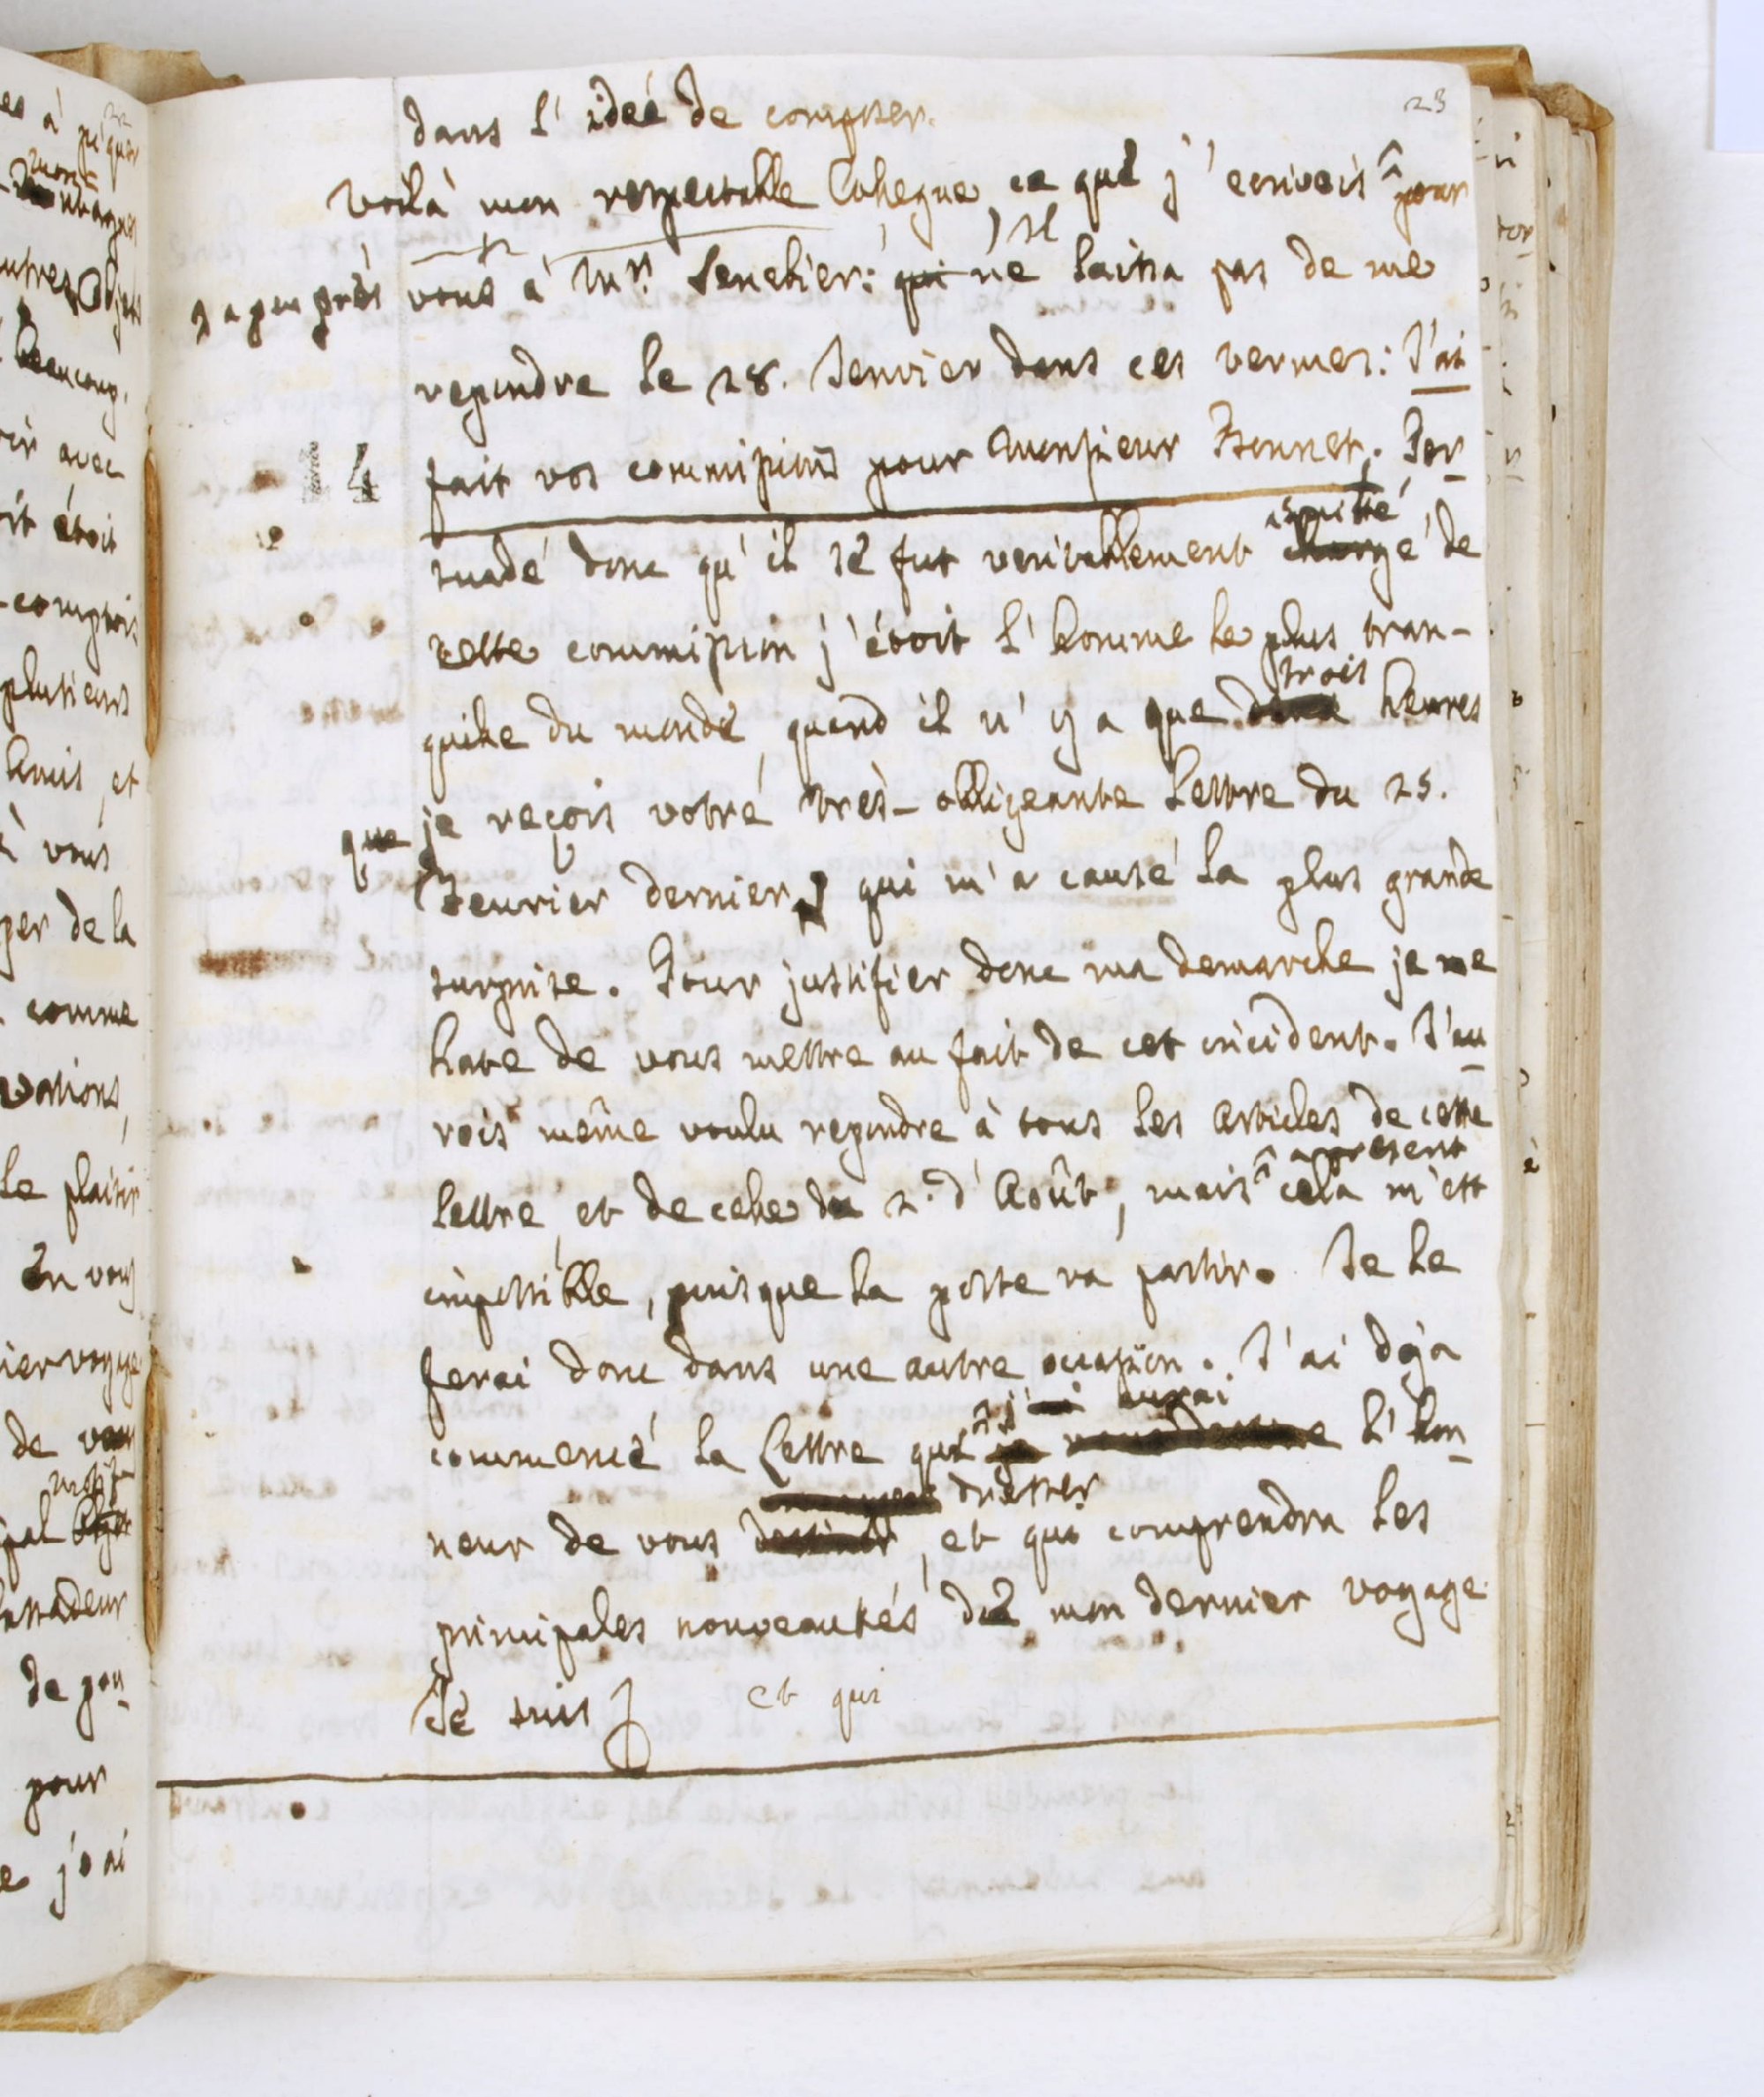 23
dans l'ideé de composer.
Voilà mon respectable Collegue, ce que j'ecrivois pour
à peu près
vous à Mr. Senebier: qui Il ne laissa pas de me
repondre le 28. Janvier dans ces termes: J'ai
14
fait vos commissions pour Monsieur Bonnet. Per-
suadé donc qu'il se fut veritablement acquitté chargé de
cette commission j'étoit l'homme le plus tran-
quille du monde, quand il n'y a que deux trois heures
que
je reçois votre très-obligeante Lettre du 25.
Feurier dernier, qui m'a causé la plus grande
surprise. Pour justifier donc ma demarche je me
hate de vous mettre au fait de cet incident. J'au
rois même voulu repondre à tous les articles de cette
lettre, et de celle du 2. d'Août, mais apresent cela m'est
impossible, puisque la poste va partir. Je le
ferai donc dans une autre occasion. J'ai deja
commencé la Lettre que j'aurai l'hon
neur de vous dresser, et qui comprendra les
principales nouveautés de mon dernier voyage.
Je suis et qui
es à piquer
autres Objets
beaucoup.
oir avec
oit étoit
-comptois
plusieurs
Amis, et
à vous
per de la
comme
vations,
le plaisir
En vous
ier voyage.
de vous
motif
pal Objet
assadeur
de pou
pour
e j'ai